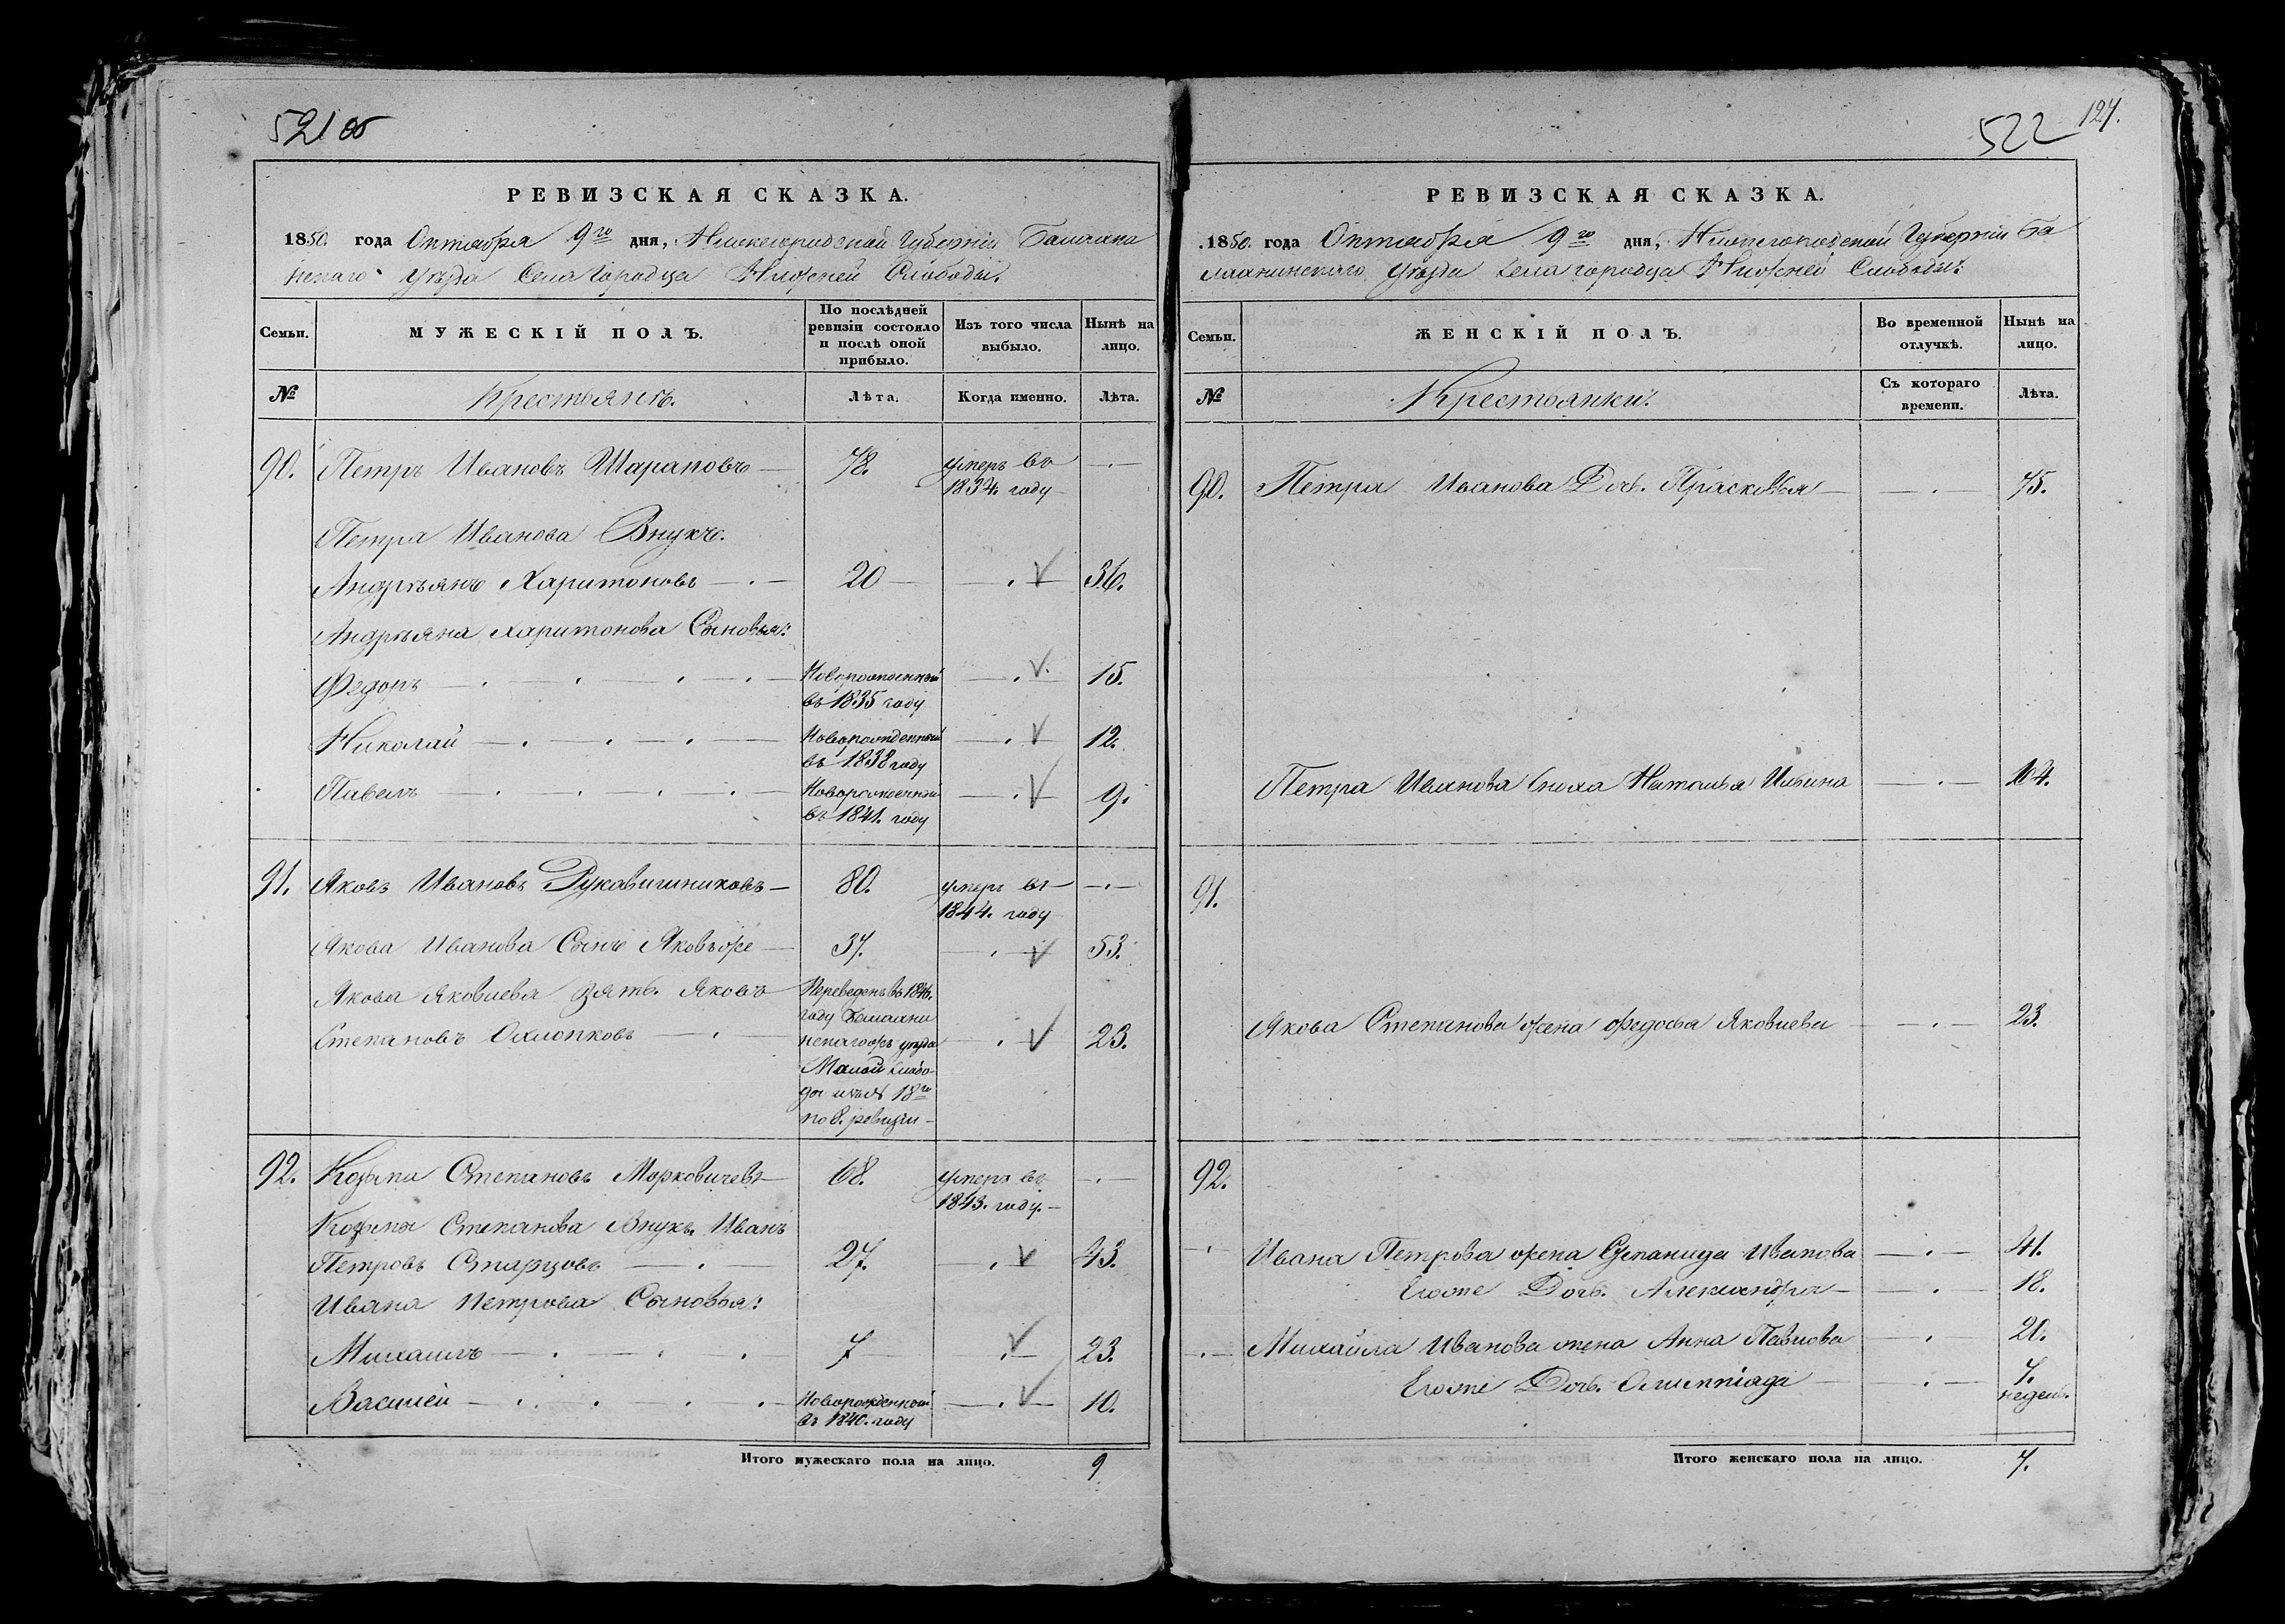 521 об
РЕВИЗСКАЯ СКАЗКА.
1850. года Октября 9го дня, Нижегородской Губернiи Балахнин
скаго уѣзда Села Городца Нижней Слободы.
Семьи.
МУЖЕСКІЙ ПОЛЪ.
По послѣдней ревизіи состояло и послѣ оной прибыло.
Изъ того числа выбыло.
Нынѣ на лицо.
№
Крестьянъ.
Лѣта.
Когда именно.
Лѣта.
90. Петръ Ивановъ Шараповъ — 78. умеръ въ — . —
1834. году —
Петра Иванова Внукъ.
Андреянъ Харитоновъ — . — 20 — . V 36.
Андреяна Харитонова Сыновья:
Федоръ — Новорожденный — . V. 15.
въ 1835 году
Николай — Новорожденный — . V 12.
въ 1838 году
Павелъ — Новорожденный — . V 9.
въ 1841. году
91. Яковъ Ивановъ Рукавишниковъ — 80. умеръ въ — . —
1844. году
Якова Иванова Сынъ Яковъ же — 37. — . V 53.
Якова Яковлева зять. Яковъ Переведенъ въ 1846.
году Балахни
Степановъ Охлопковъ — . нскагожъ уѣзда — . V 23.
Малой Слобо-
ды 18го
по 8. ревизіи —
92. Козьма Степановъ Марковичевъ — 68. умеръ въ — . —
1843. году. —
Козьмы Степанова Внукъ. Иванъ
Петровъ Старцовъ — . 27. . V 43.
Ивана Петрова Сыновья:
Михаилъ — 7 . V 23.
Василей — Новорожденной — . V 10.
въ 1840. году
Итого мужескаго пола на лицо. 9
522 127.
РЕВИЗСКАЯ СКАЗКА.
1850. года Октября 9го дня, Нижегородской Губернiи Ба
лахнинскаго уѣзда Села городца Нижней Слободы:
Семьи.
ЖЕНСКІЙ ПОЛЪ.
Во временной отлучкѣ.
Нынѣ на лицо.
№
Крестьянки.
Съ котораго времени.
Лѣта.
90. Петра Иванова Дочь. Прасковья — — . — 75.
Петра Иванова Сноха Наталья Ильина — . — 64.
91.
Якова Степанова жена Федосья Яковлева — . — 23.
92.
Ивана Петрова жена Степанида Иванова — . — 41.
Егоже Дочь. Александра — — . — 18.
Михайла Иванова жена Анна Павлова — . 20.
Егоже Дочь. Олимпіада — . — 7.
недель.
Итого женскаго пола на лицо. 7.